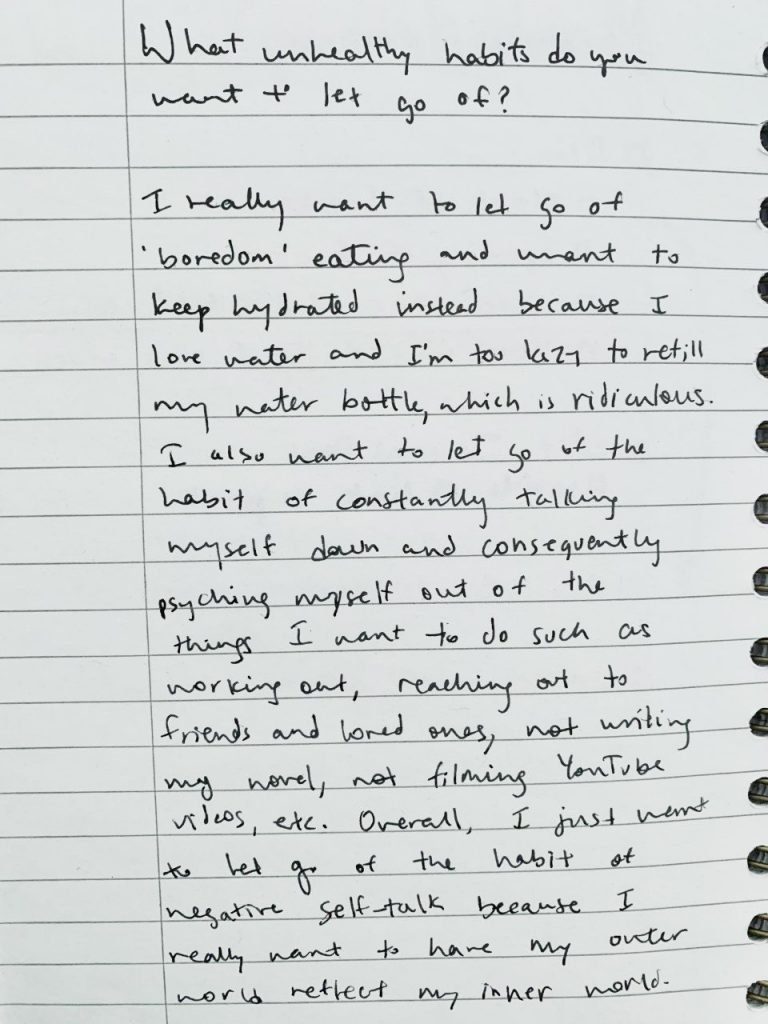 What unhealthy habits do you
want to let go of?
I really want to let go of
'boredom' eating and want to
keep hydrated instead because I
love water and I'm too lazy to refill
my water bottle, which is ridiculous.
I also want to let go of the
habit of constantly talking
myself down and consequently
psyching myself out of the
things I want to do such as
working out, reaching out to
friends and loved ones, not writing
my novel, not filming YouTube
videos, etc. Overall, I just want
to let go of the habit of
negative self-talk because I
really want to have my outer
world reflect my inner world.